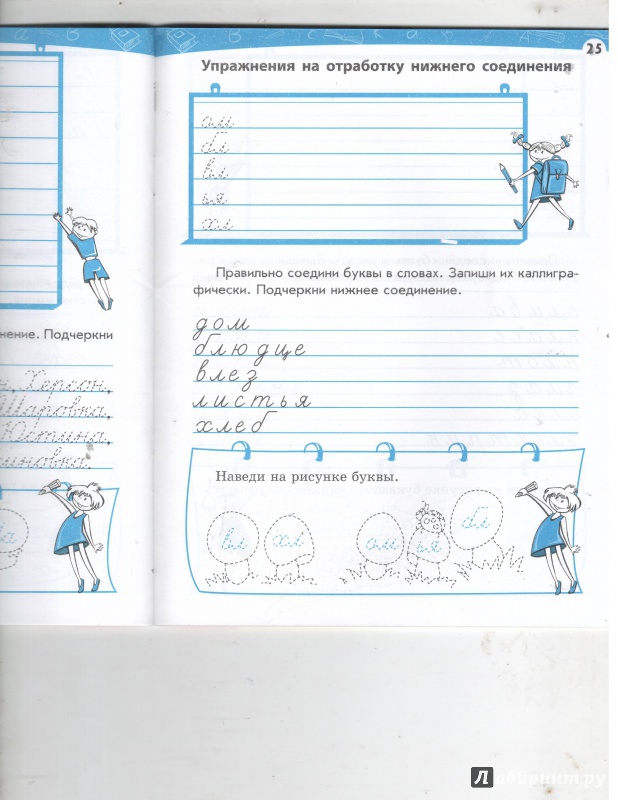 25
Упражнения на отработку нижнего соединения
ом
бл
вл
ья
хл
Правильно соедини буквы в словах. Запиши их каллигра-
фически. Подчеркни нижнее соединение.
дом
блюдце
влез
листья
хлеб
Наведи на рисунке буквы.
вл хл ом ья бл
нение. Подчеркни
Херсон,
Шаровка,
Юшина,
иновка.
Лабиринт.ру